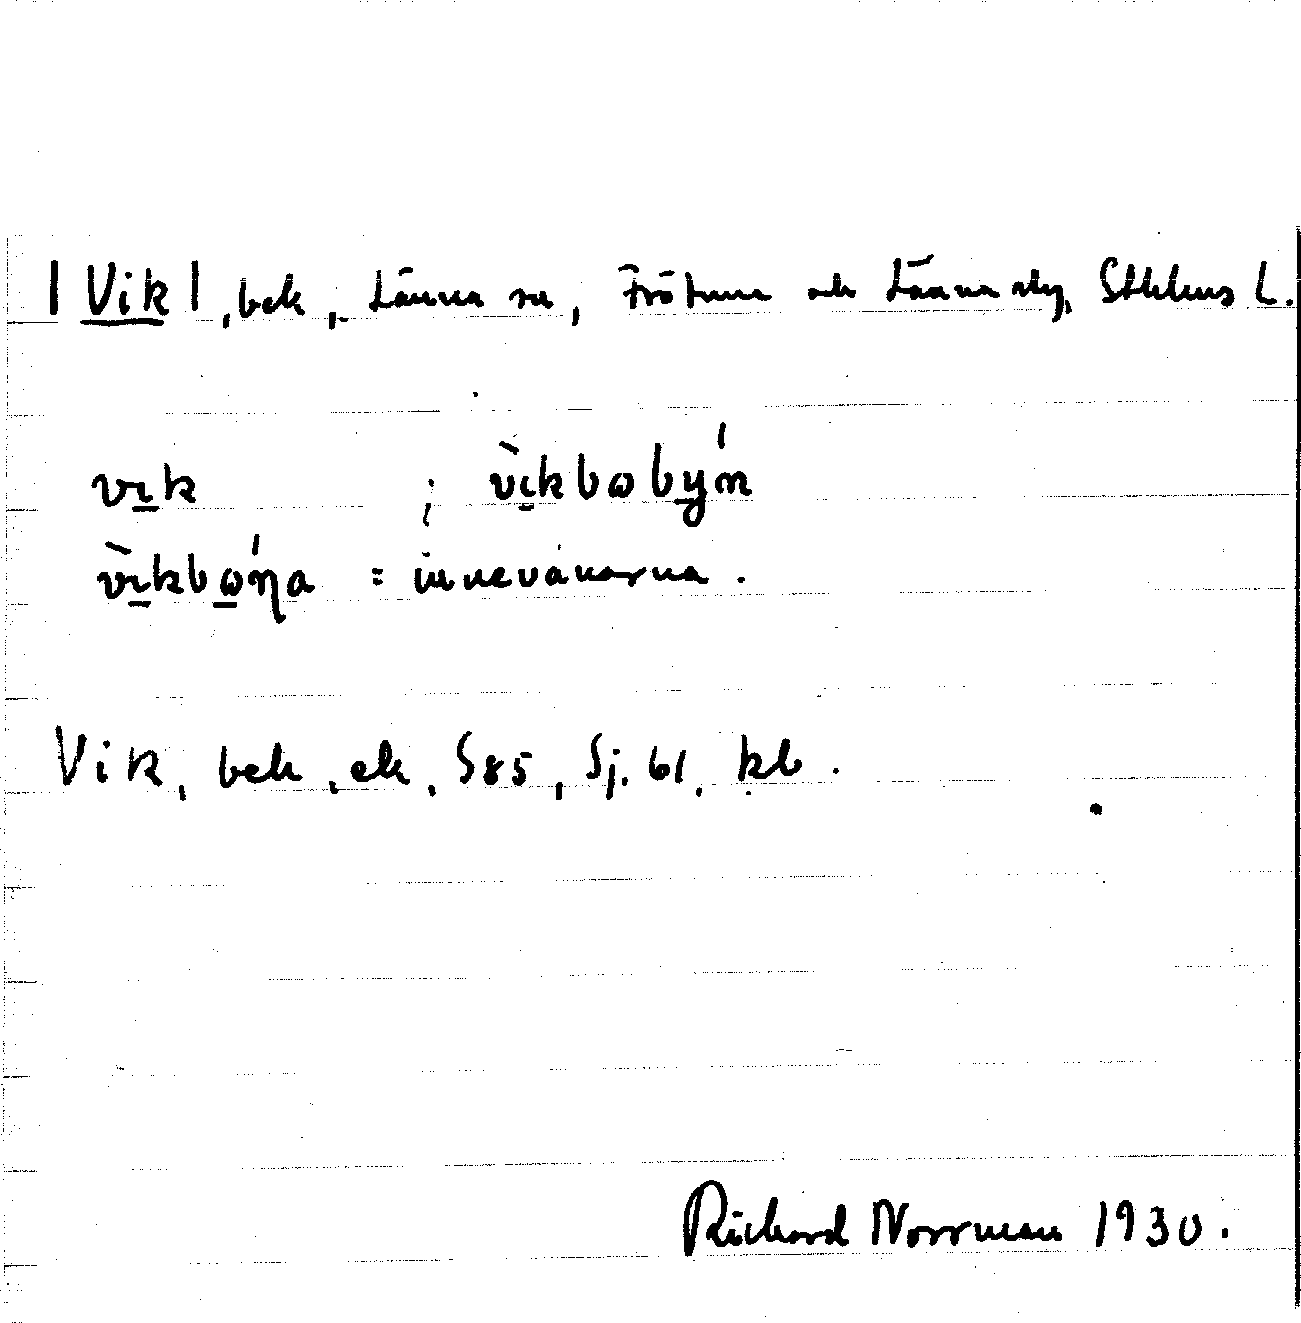 | Vik |, bek, Länna sn, Frötuna och Länna sklg, Sthlms L.
vik ; vìkbobýn
vìkbóṇa = innevånarna.
Vik, bek, ek, S85, Sj. 61, kb.
Richard Norrman 1930.